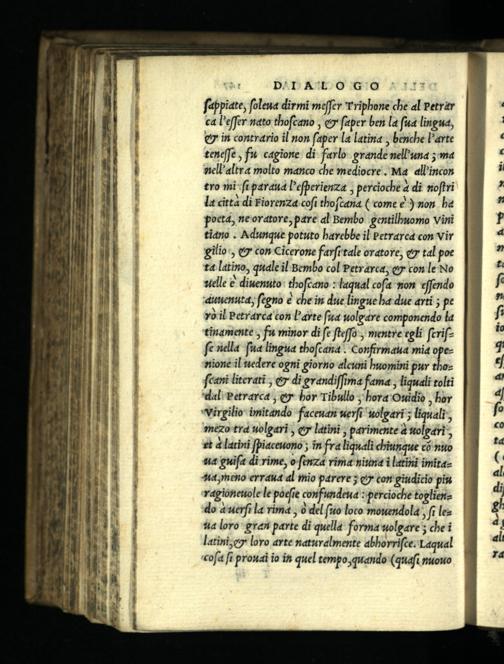 DIALOGO
sappiate, soleua dirmi messer Triphone che al Petrar
ca l'esser nato thoscano, & saper ben la sua lingua,
& in contrario il non saper la latina, benche l'arte
tenesse, fu cagione di farlo grande nell'una; ma
nell'altra molto manco che mediocre. Ma all'incon
tro mi si paraua l'esperienza, percioche à di nostri
la città di Fiorenza cosi thoscana (come è) non ha
poeta, ne oratore, pare al Bembo gentilhuomo Vini
tiano. Adunque potuto harebbe il Petrarca con Vir
gilio, & con Cicerone farsi tale oratore, & tal poe
ta latino, quale il Bembo col Petrarca, & con le No
uelle è diuenuto thoscano: laqual cosa non essendo
auuenuta, segno è che in due lingue ha due arti; pe
rò il Petrarca con l'arte sua volgare componendo la
tinamente, fu minor di se stesso, mentre egli scris-
se nella sua lingua thoscana. Confirmaua mia ope-
nione il vedere ogni giorno alcuni huomini pur tho-
scani literati, & di grandissima fama, liquali tolti
dal Petrarca, & hor Tibullo, hora Ouidio, hor
Virgilio imitando faceuan uersi uolgari; liquali,
mezo tra uolgari, & latini, parimente à volgari,
et à latini spiaceuono; in fra liquali chiunque cō nuo
ua guisa di rime, o senza rima niuna i latini imita-
ua, meno erraua al mio parere; & con giudicio piu
ragioneuole le poesie confundeua: percioche toglien-
do à uersi la rima, ò del suo loco mouendola, si le-
ua loro gran parte di quella forma uolgare; che i
latini, & loro arte naturalmente abhorrisce. Laqual
cosa si prouai io in quel tempo, quando (quasi nuouo